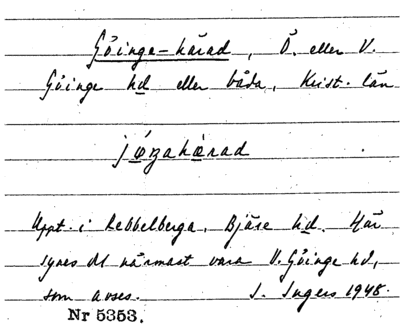 Göinge-härad, Ö. eller V.
Göinge hd eller båda, Krist. län
jǿŋahærad
Uppt. i Rebbelberga, Bjäre hd. Här
synes det närmast vara V. Göinge hd,
som avses. I. Ingers 1948.
Nr 5353.